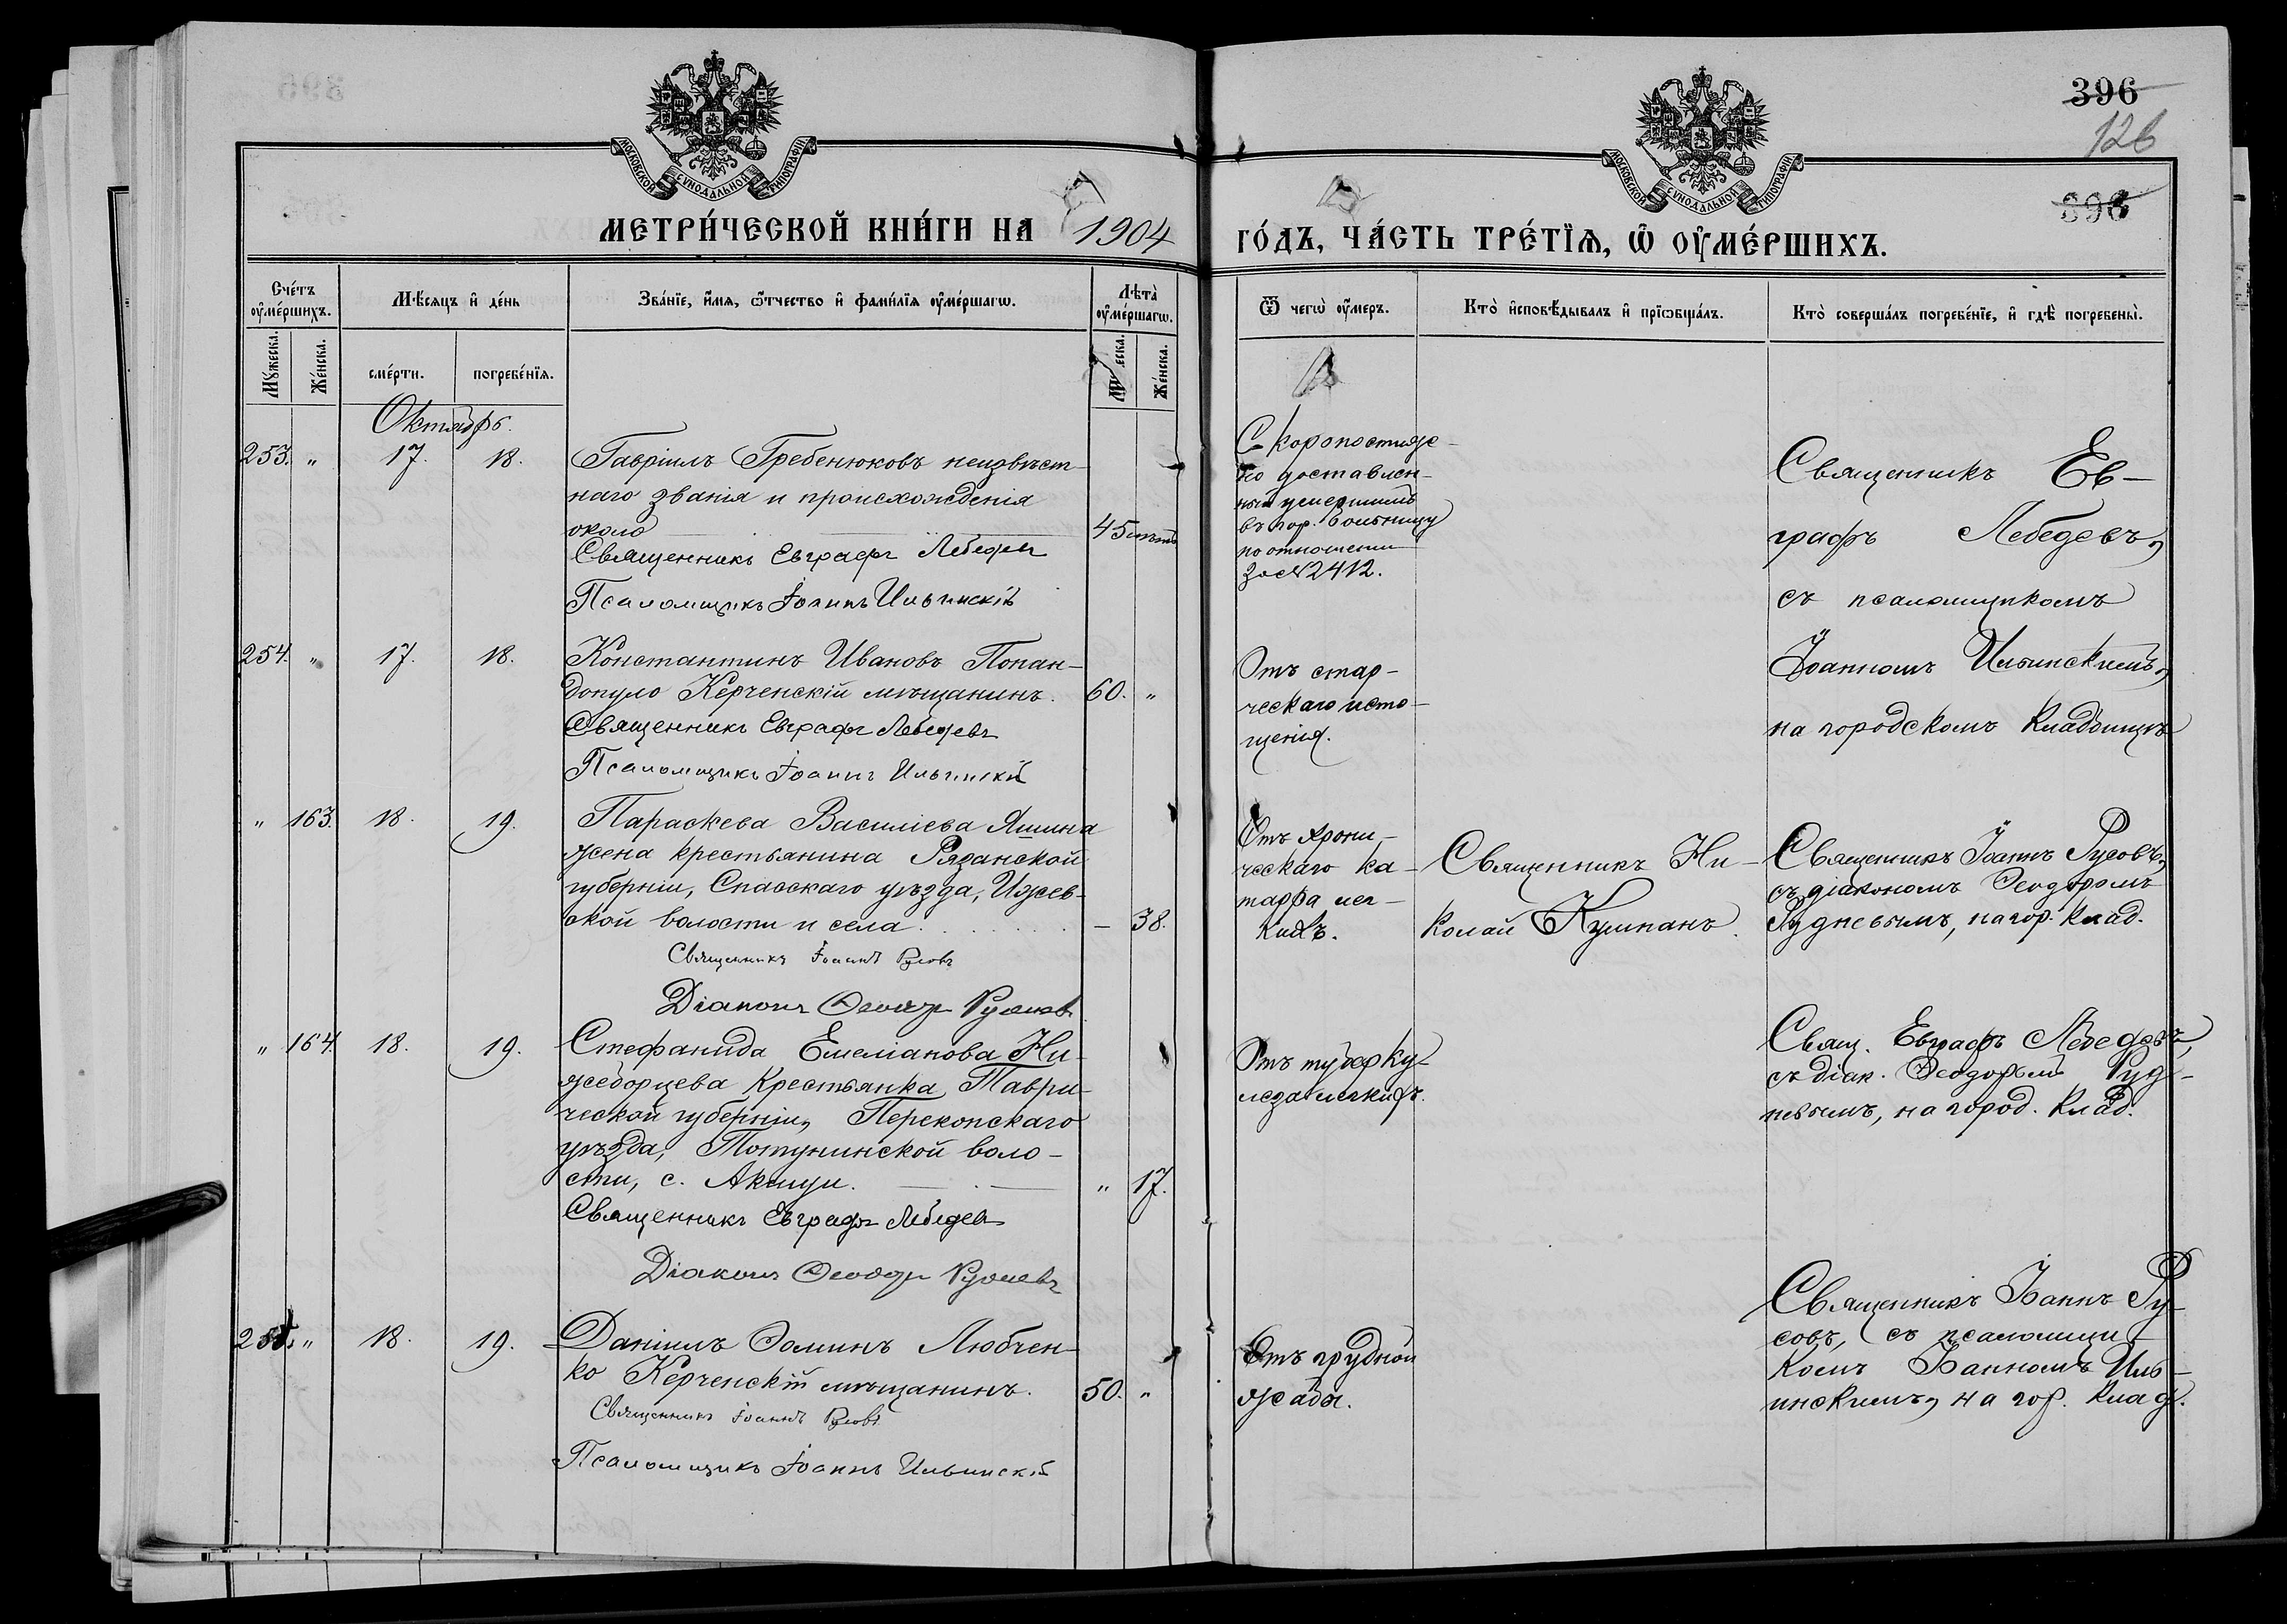 396
126
396
МОСКОВСКОЙ СУНОДАЛЬНОЙ ТИПОГРАФІИ
МОСКОВСКОЙ СУНОДАЛЬНОЙ ТИПОГРАФІИ
МЕТРИ́ЧЕСКОЙ КНИ́ГИ НА 1904 ГО́ДЪ, ЧА́СТЬ ТРЕ́ТЇѦ, Ѡ҆ ОУ҆МЕ́РШИХЪ.
Сче́тъ оу҆ме́ршихъ.
Мѣ́сяцъ и҆ де́нь
Зва́нїе, и҆́мѧ, ѻ҆́тчество и҆ фами́лїѧ оу҆ме́ршагѡ.
Лѣта̀ оу҆ме́ршагѡ.
Ѿ чегѡ̀ оу҆́меръ.
Кто̀ и҆сповѣ́дывалъ и҆ прїѡбща́лъ.
Кто̀ соверша́лъ погребе́нїе, и҆ гдѣ̀ погребены̀.
Му́жеска.
Же́нска.
сме́рти.
погребе́нїѧ.
Же́нска.
Октябрь.
253. " 17. 18.
Гавріилъ Гребенюковъ неизвѣст-
наго званія и происхожденія
около 45 лѣтъ
Священникъ Евграфъ Лебедевъ
Псаломщикъ Іоаннъ Ильинскій
Скоропостиж-
но доставлен-
ный умершимъ
въ гор. больницу
по отношенію
за № 2412.
Священникъ Ев-
графъ Лебедевъ,
съ псаломщикомъ
Іоанномъ Ильинскимъ,
на городскомъ кладбищѣ
254. " 17. 18.
Константинъ Ивановъ Попан-
допуло Керченскій мѣщанинъ. 60. "
Священникъ Евграфъ Лебедевъ
Псаломщикъ Іоаннъ Ильинскій
Отъ стар-
ческаго исто-
щенія.
" 163. 18. 19.
Параскева Василіева Яшина
жена крестьянина Рязанской
губерніи, Спасскаго уѣзда, Ижев-
ской волости и села - 38.
Священникъ Іоаннъ Русовъ
Діаконъ Ѳеодоръ Рудневъ
Отъ хрони-
ческаго ка-
тарра лег-
кихъ.
Священникъ Ни-
колай Кушпанъ.
Священникъ Іоаннъ Русовъ,
съ діакономъ Ѳеодоромъ
Рудневымъ, на гор. клад.
" 164. 18. 19.
Стефанида Емеліанова Ни-
жеборцева крестьянка Таври-
ческой губерніи, Перекопскаго
уѣзда, волo-
сти, с. " 17.
Священникъ Евграфъ Лебедевъ
Діаконъ Ѳеодоръ Рудневъ
Отъ туберку-
леза легкихъ.
Свящ. Евграфъ Лебедевъ,
съ діак. Ѳеодоромъ Руд-
невымъ, на город. клад.
255. " 18. 19.
Даніилъ Ѳоминъ Любчен-
ко Керченскій мѣщанинъ. 50. "
Священникъ Іоаннъ Русовъ
Псаломщикъ Іоаннъ Ильинскій
Отъ грудной
жабы.
Священникъ Іоаннъ Ру-
совъ, съ псаломщи-
комъ Іоанномъ Иль-
инскимъ, на гор. клад.